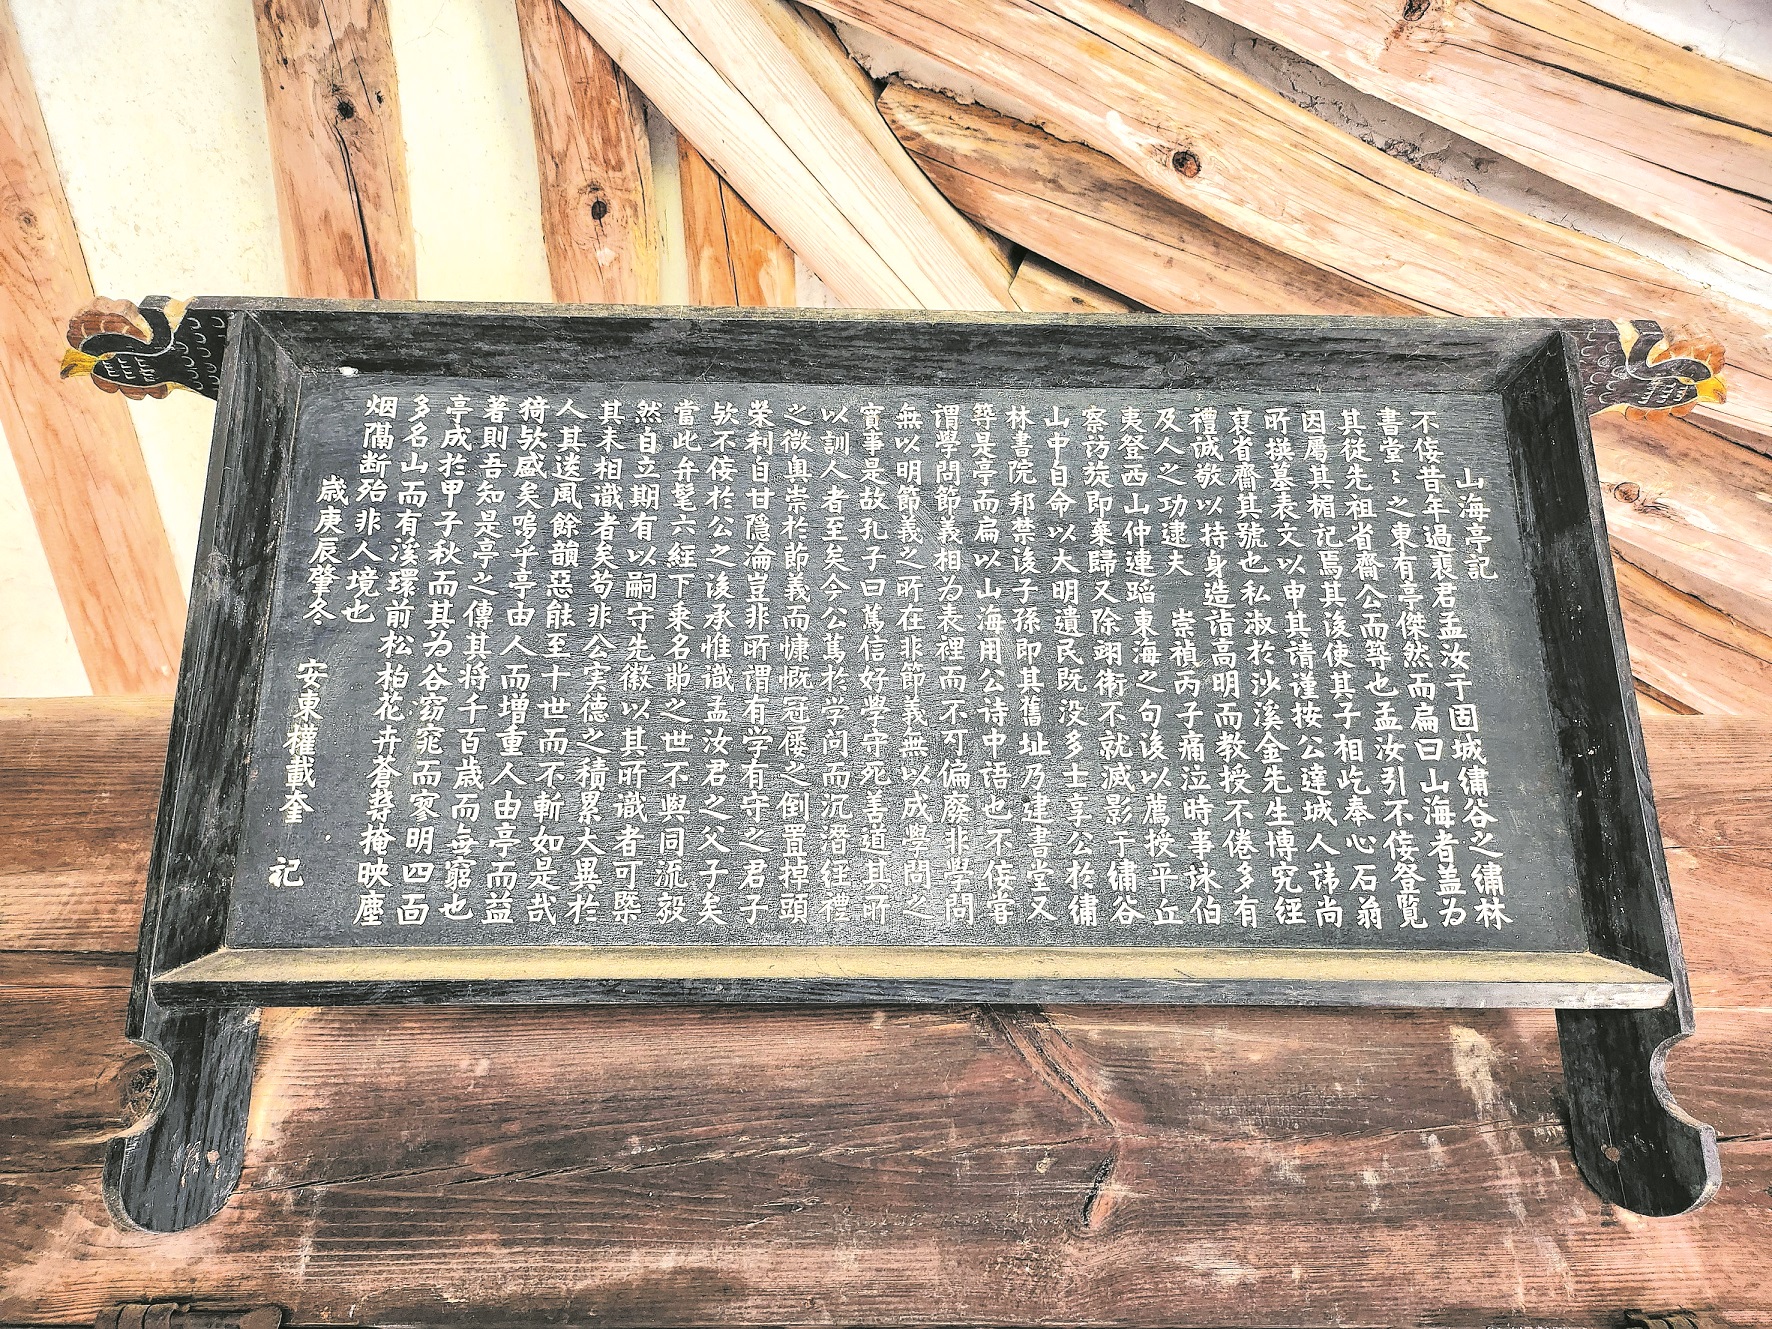 山海亭記
不佞昔年過裵君孟汝于固城繡谷之繡林
書堂〻之東有亭傑然而扁曰山海者盖为
其從先祖省齋公而築也孟汝引不佞登覧
因屬其楣記焉其後使其子相屹奉心石翁
所撰墓表文以申其请谨按公達城人讳尚
裒省齋其號也私淑於沙溪金先生博究經
禮诚敬以持身造诣高明而教授不倦多有
及人之功逮夫　崇禎丙子痛泣時事詠伯
夷登西山仲連蹈東海之句後以薦授平丘
察访旋即棄歸又除翊衛不就滅影于繡谷
山中自命以大明遺民既没多士享公於繡
林書院邦禁後子孫即其舊址乃建書堂又
築是亭而扁以山海用公诗中语也不佞甞
谓學問節義相为表裡而不可偏廢非學問
無以明節義之所在非節義無以成學問之
實事是故孔子曰篤信好學守死善道其所
以訓人者至矣今公篤於学问而沉潛經禮
之微輿崇於節義而慷慨冠屦之倒置掉頭
荣利自甘隠淪豈非所谓有学有守之君子
欤不佞於公之後承惟識孟汝君之父子矣
當此弁髦六經下乗名节之世不與同流毅
然自立期有以嗣守先徽以其所識者可槩
其未相識者矣苟非公实德之積累大異於
人其遗風餘韻惡能至十世而不斬如是哉
猗欤感矣嗚乎亭由人而增重人由亭而益
著則吾知是亭之傳其将千百歳而無窮也
亭成於甲子秋而其为谷窈窕而寥明四面
多名山而有溪環前松柏花卉蒼翠掩映塵
烟隔断殆非人境也
歳庚辰肇冬　安東權載奎　记